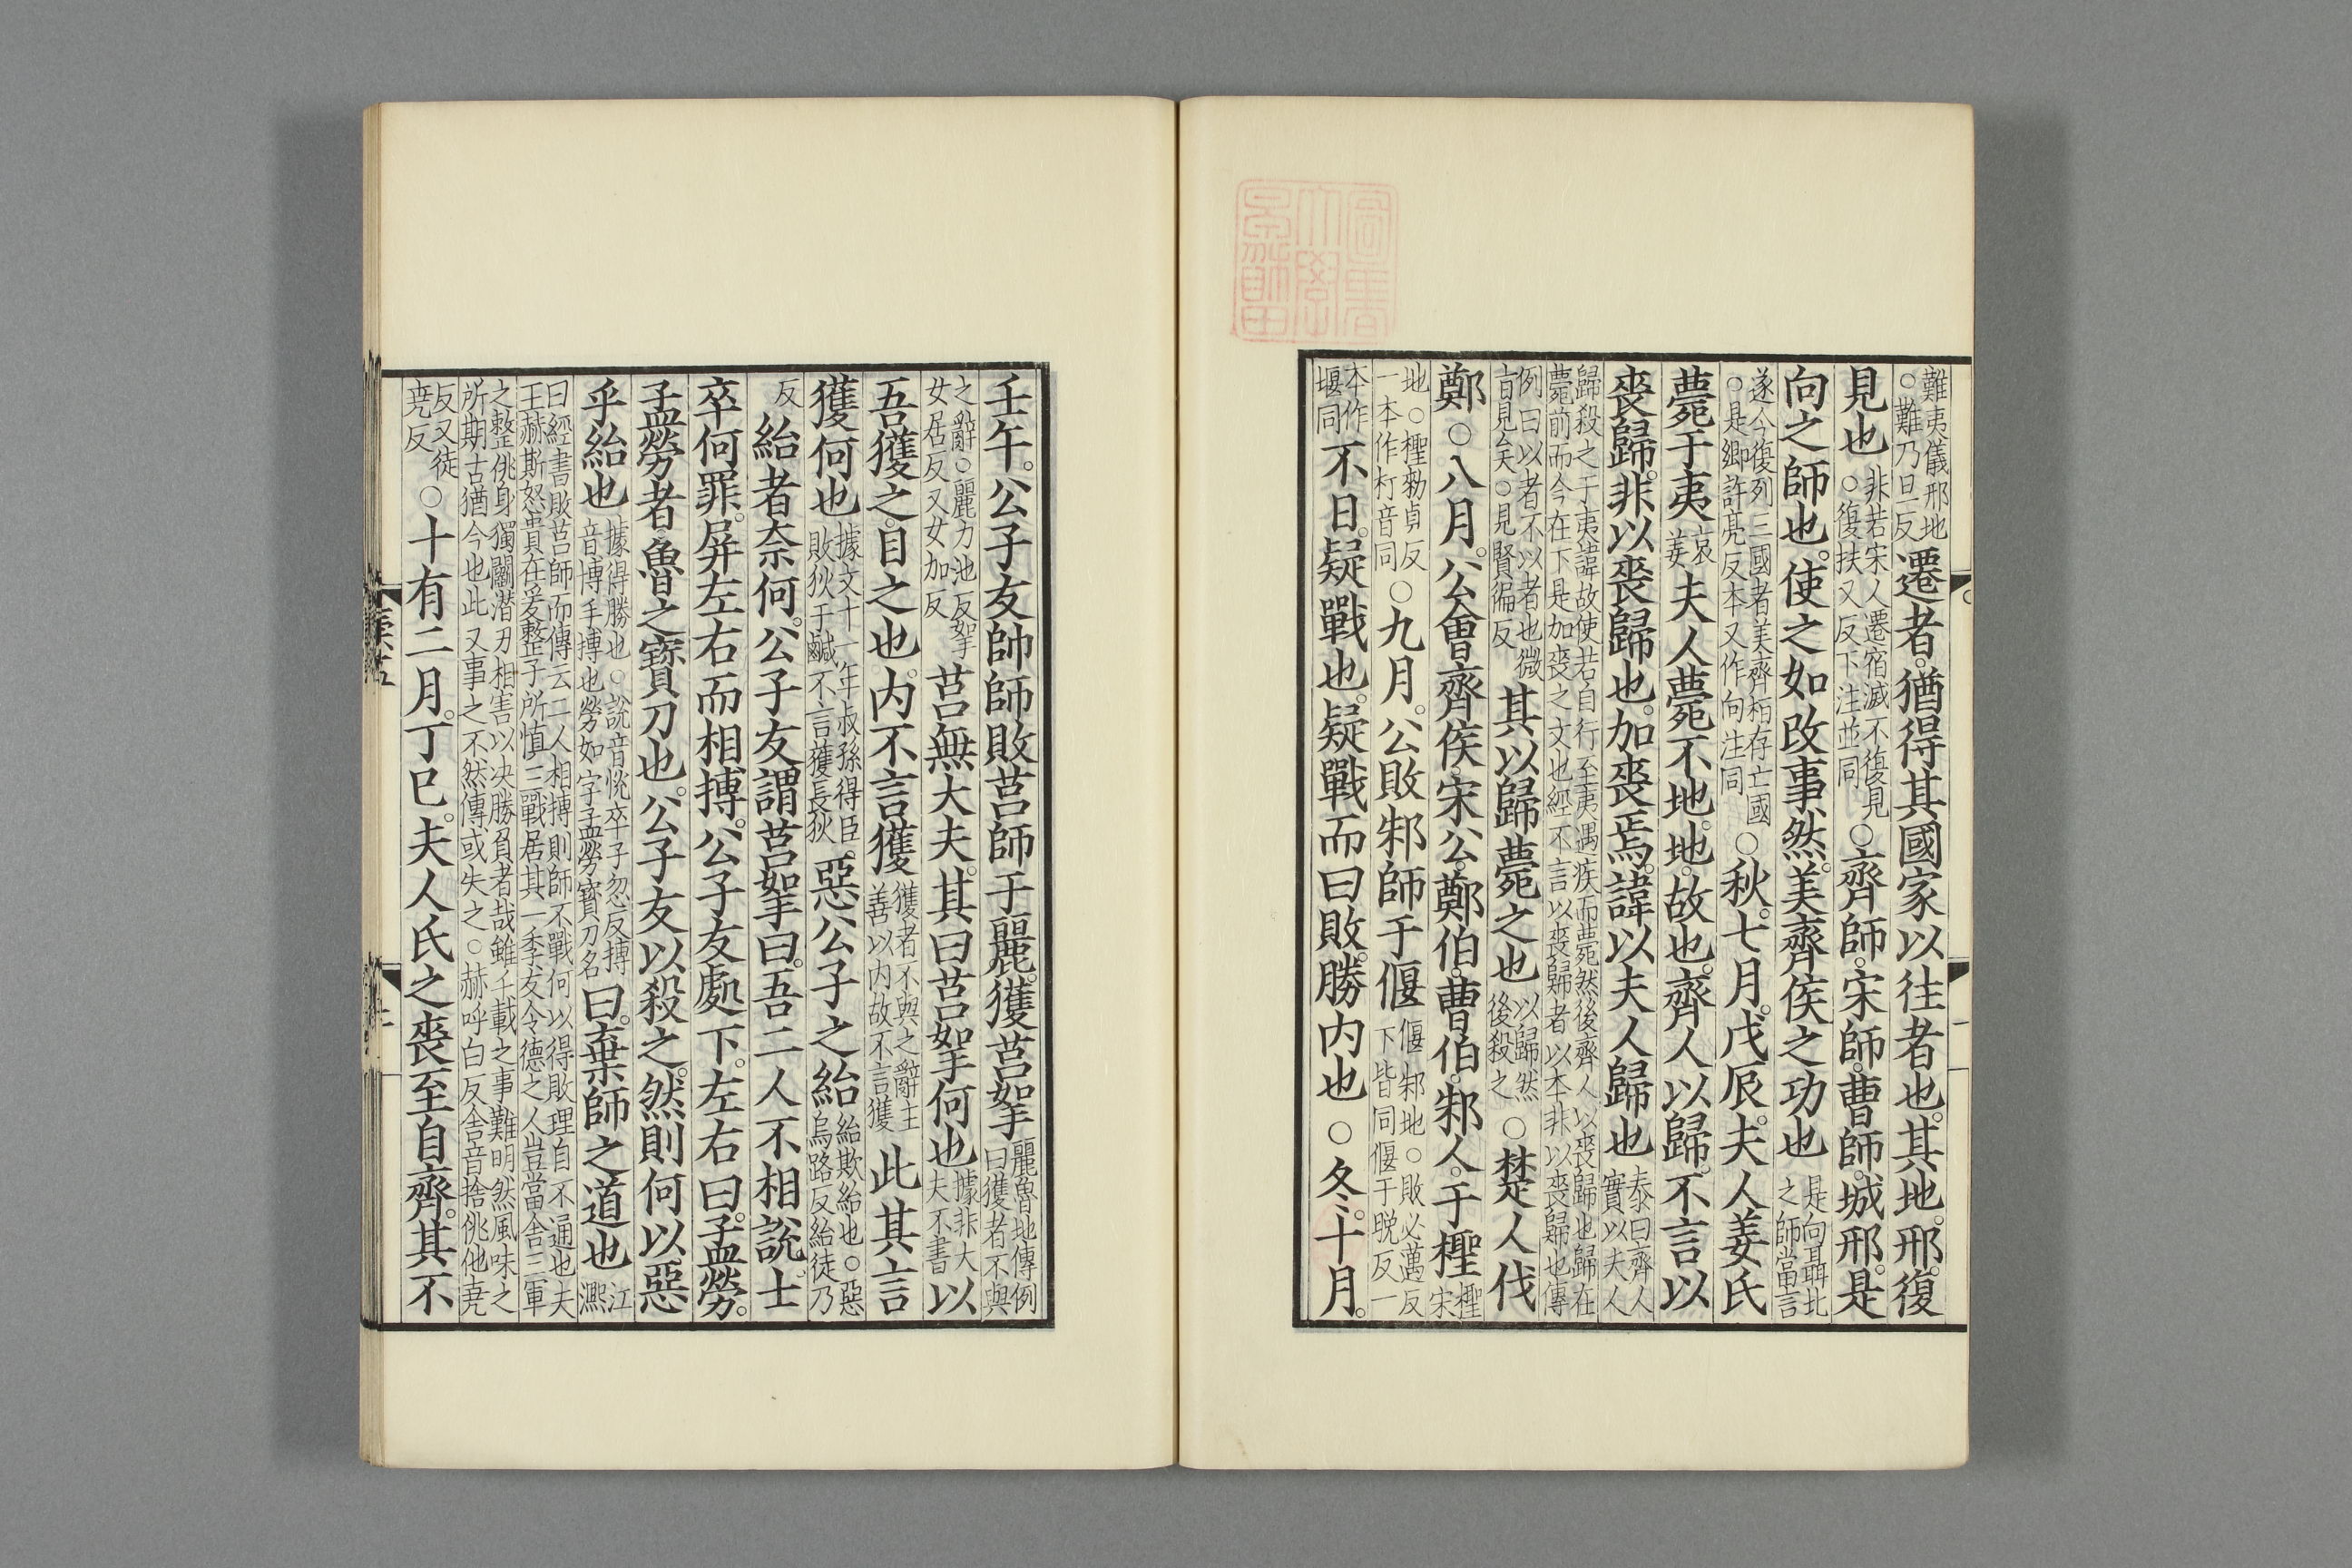 難夷儀邢地
○難乃旦反
遷者猶得其國家以往者也其地邢復
見也
非若宋人遷宿滅不復見
○復扶又反下注並同
○齊師宋師曹師城邢是
向之師也使之如改事然美齊侯之功也
是向聶北
之師當言
遂今復列三國者美齊桓存亡國
○是鄉許亮反本又作向注同
○秋七月戊辰夫人姜氏
薨于夷
哀
姜
夫人薨不地地故也齊人以歸不言以
喪歸非以喪歸也加喪焉諱以夫人歸也
泰曰齊人
實以夫人
歸殺之于夷諱故使若自行至夷遇疾而薨然後齊人以喪歸也歸在
薨前而今在下是加喪之文也經不言以喪歸者以本非以喪歸也傳
例曰以者不以者也微
旨見矣○見賢徧反
其以歸薨之也
以歸然
後殺之
○楚人伐
鄭○八月公會齊侯宋公鄭伯曹伯邾人于檉
檉
宋
地○檉勑貞反
一本作朾音同
○九月公敗邾師于偃
偃邾地○敗必邁反
下皆同偃于晚反一
本作
堰同
不日疑戰也疑戰而曰敗勝內也○冬十月
壬午公子友帥師敗莒師于麗獲莒挐
麗魯地傳例
曰獲者不與
之辭○麗力池反挐
女居反又女加反
莒無大夫其曰莒挐何也
據非大
夫不書
以
吾獲之目之也內不言獲
獲者不與之辭主
善以內故不言獲
此其言
獲何也
據文十一年叔孫得臣
敗狄于鹹不言獲長狄
惡公子之紿
紿欺紿也○惡
烏路反紿徒乃
反
紿者奈何公子友謂莒挐曰吾二人不相說士
卒何罪屏左右而相搏公子友處下左右曰孟勞
孟勞者魯之寶刀也公子友以殺之然則何以惡
乎紿也
據得勝也○說音悅卒子忽反搏
音博手搏也勞如字孟勞寶刀名
曰棄師之道也
江
熙
曰經書敗莒師而傳云二人相搏則師不戰何以得敗理自不通也夫
王赫斯怒貴在爰整子所慎三戰居其一季友令德之人豈當舍三軍
之整佻身獨鬭潛刃相害以决勝負者哉雖千載之事難明然風味之
所期古猶今也此又事之不然傳或失之○赫呼白反舍音捨佻他堯
反又徒
堯反
○十有二月丁巳夫人氏之喪至自齊其不